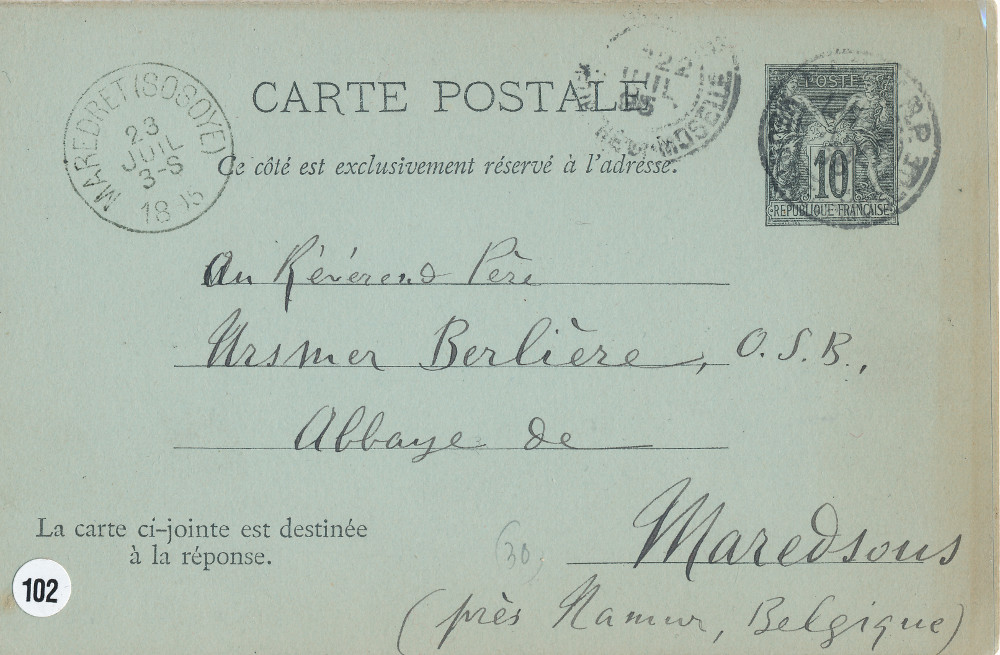 CARTE POSTALE
Ce côté est exclusivement réservé à l'adresse.
MAREDRET (SOSOYE)
23
JUIL
3-S
18
22
JUIL
MOSELLE
POSTE
10
REPUBLIQUE FRANÇAISE
Au Révérend Père
Ursmer Berlière, O.S.B.,
Abbaye de
Maredsous
(près Namur, Belgique)
La carte ci-jointe est destinée
à la réponse.
(30)
102